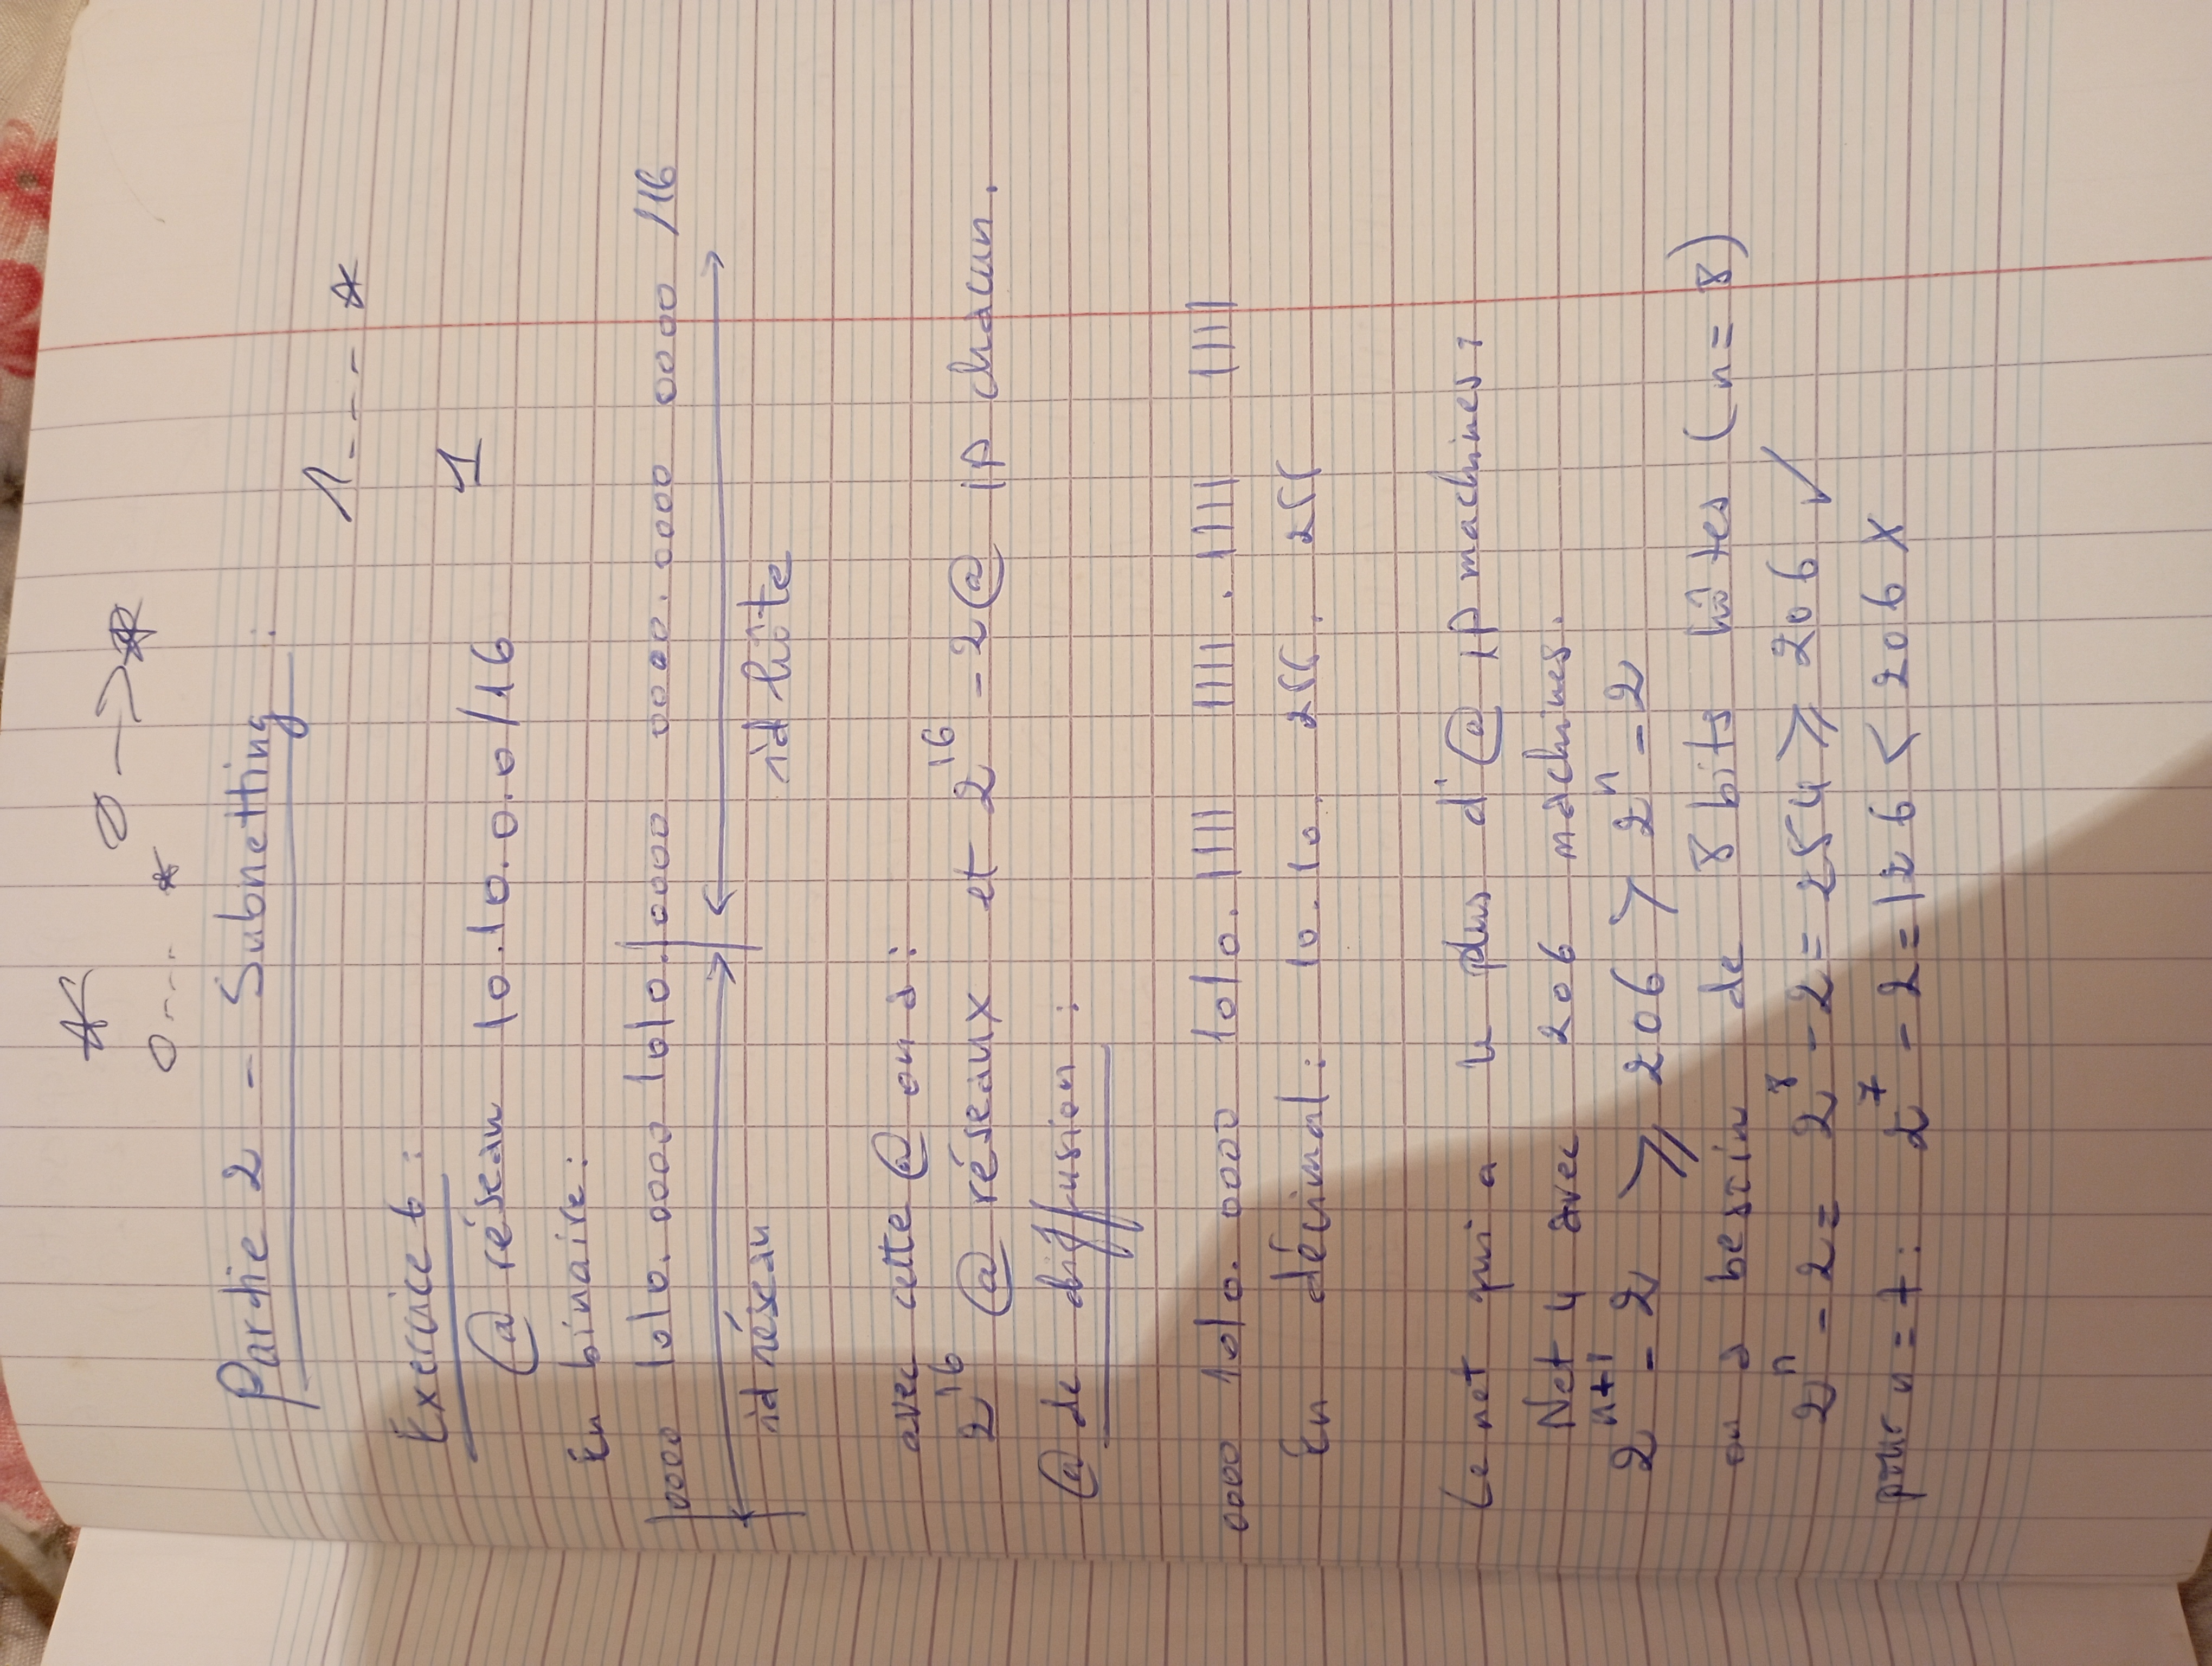 * 0 -> *
0 --- *
Partie 2 - Subnetting :
1 --- - *
Exercice 6 :
1
@ réseau 10.10.0.0/16
En binaire :
0000 1010.0000 1010.0000 0000.0000 0000 /16
id réseau id hôte
avec cette @ on a :
2^16 @ réseaux et 2^16 - 2 @ IP chacun.
@ de diffusion :
0000 1010.0000 1010.1111 1111.1111 1111
En décimal : 10.10.255.255
Le net qui a le plus d'@ IP machines :
Net 4 avec 206 machines.
2^n+1 - 2 ⩾ 206 > 2^n - 2
on a besoin de 8 bits hôtes (n = 8)
2^n - 2 = 2^8 - 2 = 254 ⩾ 206 ✓
pour n = 7 : 2^7 - 2 = 126 < 206 x